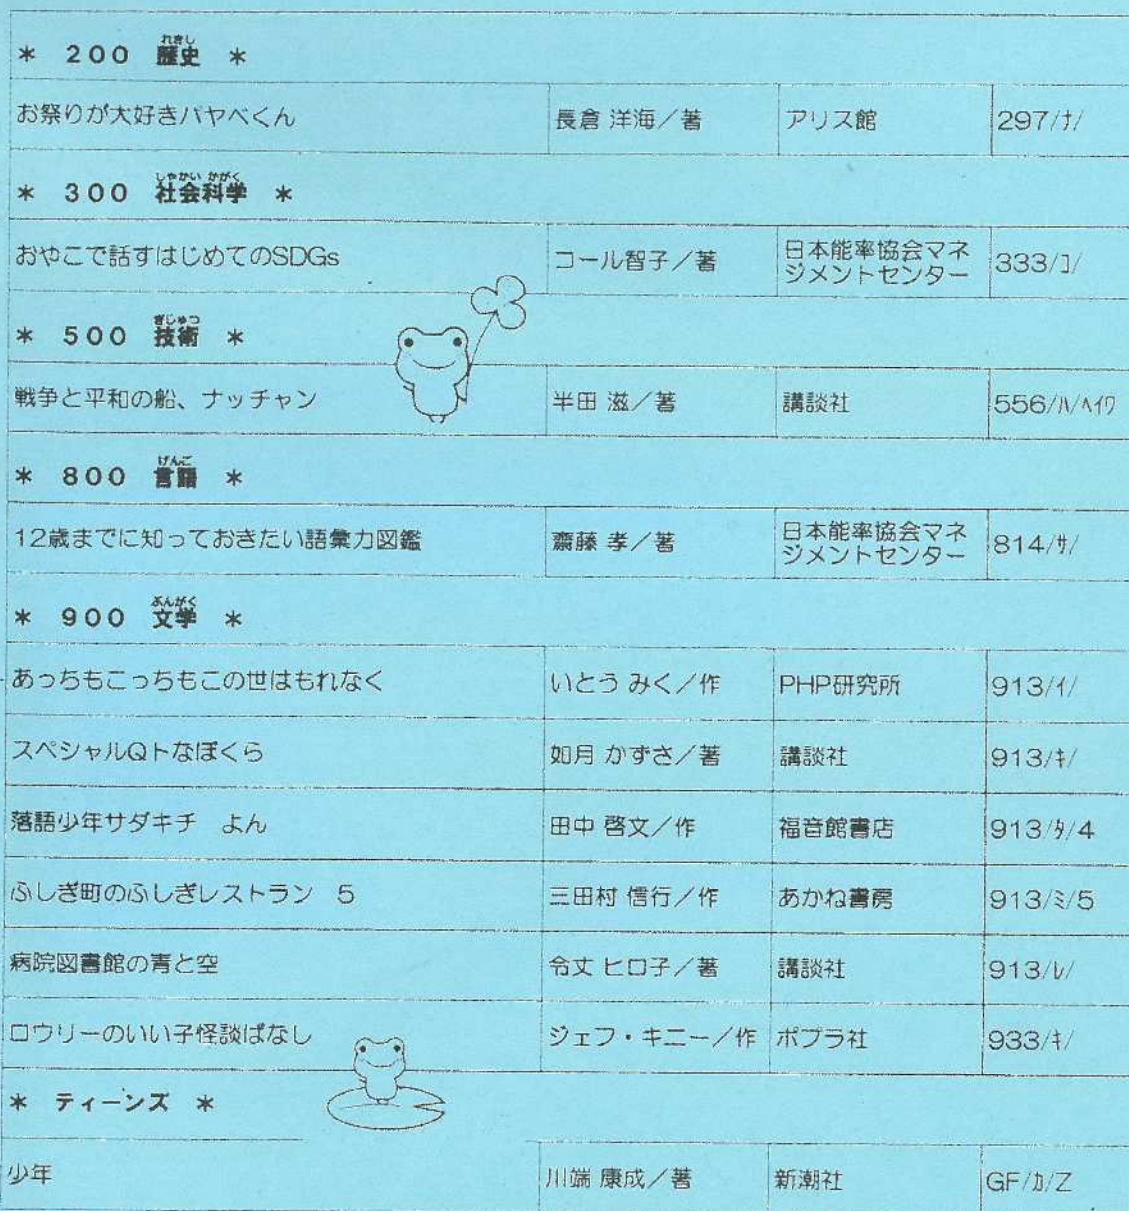 れきし
* 200 歴史 *
お祭りが大好きパヤベくん 長倉 洋海／著 アリス館 297/ﾅ/
しゃかい かがく
* 300 社会科学 *
おやこで話すはじめてのSDGs コール智子／著 日本能率協会マネ
ジメントセンター 333/ｺ/
ぎじゅつ
* 500 技術 *
戦争と平和の船、ナッチャン 半田 滋／著 講談社 556/ﾊ/ﾍｲﾜ
げんご
* 800 言語 *
12歳までに知っておきたい語彙力図鑑 齋藤 孝／著 日本能率協会マネ
ジメントセンター 814/ｻ/
ぶんがく
* 900 文学 *
あっちもこっちもこの世はもれなく いとう みく／作 PHP研究所 913/ｲ/
スペシャルQトなぼくら 如月 かずさ／著 講談社 913/ｷ/
落語少年サダキチ よん 田中 啓文／作 福音館書店 913/ﾀ/4
ふしぎ町のふしぎレストラン 5 三田村 信行／作 あかね書房 913/ﾐ/5
病院図書館の青と空 令丈 ヒロ子／著 講談社 913/ﾚ/
ロウリーのいい子怪談ばなし ジェフ・キニー／作 ポプラ社 933/ｷ/
* ティーンズ *
少年 川端 康成／著 新潮社 GF/ｶ/Z